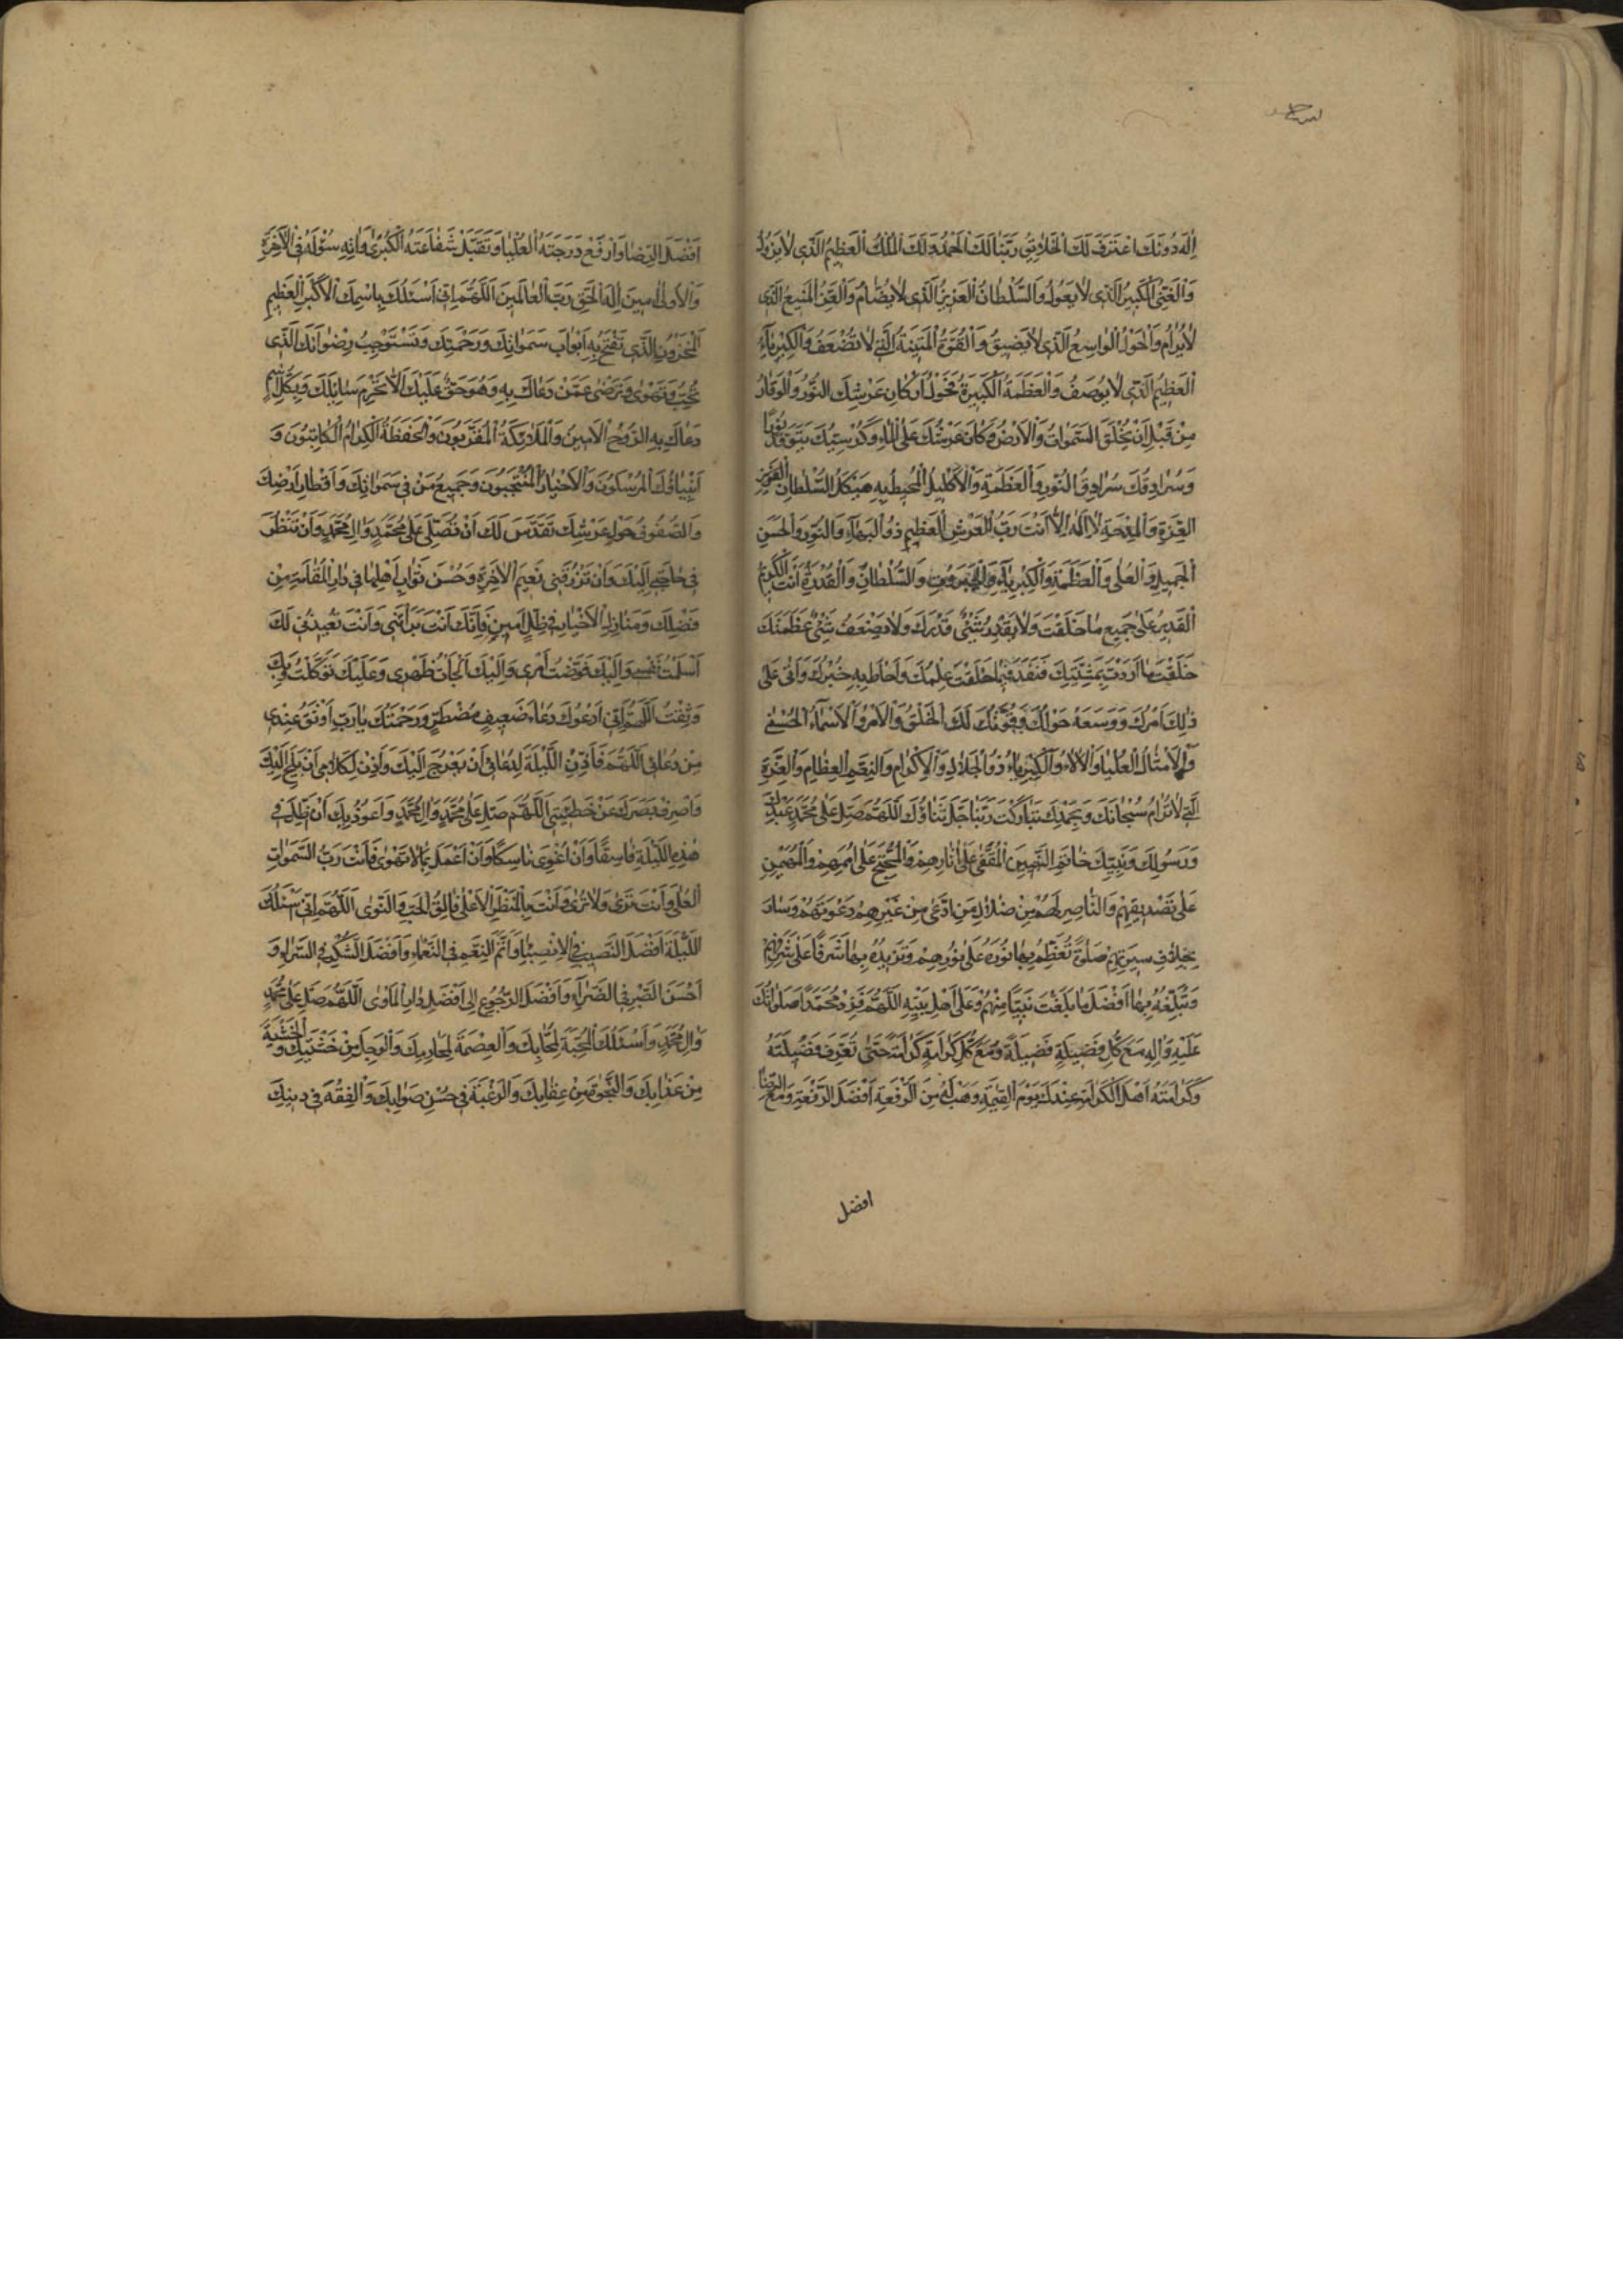 اِلٰهَ دُونَكَ اعْتَرَفَ لَكَ الْخَلَائِقُ رَبَّنَا لَكَ الْحَمْدُ وَلَكَ الْمُلْكُ الْعَظِيمُ الَّذِي لَا يَزُولُ
وَالْغِنَى الْكَبِيرُ الَّذِي لَا يَعُولُ وَالسُّلْطَانُ الْعَزِيزُ الَّذِي لَا يُضَامُ وَالْعِزُّ الْمَنِيعُ الَّذِي
لَا يُرَامُ وَالْحَوْلُ الْوَاسِعُ الَّذِي لَا يَضِيقُ وَالْقُوَّةُ الْمَتِينَةُ الَّتِي لَا تَضْعُفُ وَالْكِبْرِيَاءُ
الْعَظِيمُ الَّذِي لَا يُوصَفُ وَالْعَظَمَةُ الْكَبِيرَةُ فَحَوْلَ أَرْكَانِ عَرْشِكَ النُّورُ وَالْوَقَارُ
مِنْ قَبْلِ اَنْ تَخْلُقَ السَّمٰوَاتِ وَالْاَرْضَ وَكَانَ عَرْشُكَ عَلَى الْمَاءِ وَكُرْسِيُّكَ يَتَوَقَّدُ نُورًا
وَسُرَادِقُكَ سُرَادِقُ النُّورِ وَالْعَظَمَةِ وَالْاِكْلِيلُ الْمُحِيطُ بِهِ هَيْكَلُ السُّلْطَانِ
الْعِزَّةِ وَالْمِدْحَةِ لَا اِلٰهَ اِلَّا اَنْتَ رَبُّ الْعَرْشِ الْعَظِيمِ ذُو الْبَهَاءِ وَالنُّورِ وَالْحُسْنِ
الْجَمِيلِ وَالْعُلٰى وَالْعَظَمَةِ وَالْكِبْرِيَاءِ وَالْجَبَرُوتِ وَالسُّلْطَانِ وَالْقُدْرَةِ اَنْتَ الْكَرِيمُ
الْقَدِيرُ عَلٰى جَمِيعِ مَا خَلَقْتَ وَلَا يَقْدِرُ شَيْءٌ قَدْرَكَ وَلَا يُضَعِّفُ شَيْءٌ عَظَمَتَكَ
خَلَقْتَ مَا اَرَدْتَ بِمَشِيَّتِكَ فَنَفَذَ فِيمَا خَلَقْتَ عِلْمُكَ وَاَحَاطَ بِهِ خُبْرُكَ وَاَتٰى عَلٰى
ذٰلِكَ اَمْرُكَ وَوَسِعَهُ حَوْلُكَ وَقُوَّتُكَ لَكَ الْخَلْقُ وَالْاَمْرُ وَالْاَسْمَاءُ الْحُسْنٰى
وَالْاَمْثَالُ الْعُلْيَا وَالْاٰلَاءُ وَالْكِبْرِيَاءُ ذُو الْجَلَالِ وَالْاِكْرَامِ وَالنِّعَمِ الْعِظَامِ وَالْعِزَّةِ
الَّتِي لَا تُرَامُ سُبْحَانَكَ وَبِحَمْدِكَ تَبَارَكْتَ رَبَّنَا جَلَّ ثَنَاؤُكَ اَللّٰهُمَّ صَلِّ عَلٰى مُحَمَّدٍ عَبْدِكَ
وَرَسُولِكَ وَنَبِيِّكَ خَاتَمِ النَّبِيِّينَ الْمُقَفّٰى عَلٰى اٰثَارِهِمْ وَالْمُحْتَجِّ عَلٰى اُمَمِهِمْ وَالْمُهَيْمِنِ
عَلٰى تَصْدِيقِهِمْ وَالنَّاصِرِ لَهُمْ مِنْ ضَلَالِ مَنِ ادَّعٰى مِنْ غَيْرِهِمْ دَعْوَتَهُمْ وَسَارَ
بِخِلَافِ سِيرَتِهِمْ صَلٰوةً تُعَظِّمُ بِهَا نُورَهُ عَلٰى نُورِهِمْ وَتَزِيدُهُ بِهَا شَرَفًا عَلٰى شَرَفِهِمْ
وَتُبَلِّغُهُ بِهَا اَفْضَلَ مَا بَلَّغْتَ نَبِيًّا مِنْهُمْ وَعَلٰى اَهْلِ بَيْتِهِ اَللّٰهُمَّ فَزِدْ مُحَمَّدًا صَلَوَاتُكَ
عَلَيْهِ وَاٰلِهِ مَعَ كُلِّ فَضِيلَةٍ فَضِيلَةً وَمَعَ كُلِّ كَرَامَةٍ كَرَامَةً حَتّٰى تُعَرِّفَ فَضِيلَتَهُ
وَكَرَامَتَهُ اَهْلَ الْكَرَامَةِ عِنْدَكَ يَوْمَ الْقِيٰمَةِ وَهَبْ لَهُ مِنَ الرِّفْعَةِ اَفْضَلَ الرِّفْعَةِ وَمِنَ الرِّضَا
افضل
اَفْضَلَ الرِّضَا وَارْفَعْ دَرَجَتَهُ الْعُلْيَا وَتَقَبَّلْ شَفَاعَتَهُ الْكُبْرٰى وَاٰتِهِ سُؤْلَهُ فِي الْاٰخِرَةِ
وَالْاُولٰى اٰمِينَ اِلٰهَ الْحَقِّ رَبَّ الْعَالَمِينَ اَللّٰهُمَّ اِنِّي اَسْئَلُكَ بِاسْمِكَ الْاَكْبَرِ الْعَظِيمِ
الْمَخْزُونِ الَّذِي تَفْتَحُ بِهِ اَبْوَابَ سَمٰوَاتِكَ وَرَحْمَتِكَ وَتَسْتَوْجِبُ رِضْوَانَكَ الَّذِي
تُحِبُّ وَتَهْوٰى وَتَرْضٰى عَمَّنْ دَعَاكَ بِهِ وَهُوَ حَقٌّ عَلَيْكَ اَلَّا تَحْرِمَ سَائِلَكَ وَبِكُلِّ اسْمٍ
دَعَاكَ بِهِ الرُّوحُ الْاَمِينُ وَالْمَلَائِكَةُ الْمُقَرَّبُونَ وَالْحَفَظَةُ الْكِرَامُ الْكَاتِبُونَ وَ
اَنْبِيَاؤُكَ الْمُرْسَلُونَ وَالْاَخْيَارُ الْمُنْتَجَبُونَ وَجَمِيعُ مَنْ فِي سَمٰوَاتِكَ وَاَقْطَارِ اَرْضِكَ
وَالصُّفُوفُ حَوْلَ عَرْشِكَ تُقَدِّسُ لَكَ اَنْ تُصَلِّيَ عَلٰى مُحَمَّدٍ وَاٰلِ مُحَمَّدٍ وَاَنْ تَنْظُرَ
فِي حَاجَتِي اِلَيْكَ وَاَنْ تَرْزُقَنِي نَعِيمَ الْاٰخِرَةِ وَحُسْنَ ثَوَابِ اَهْلِهَا فِي دَارِ الْمُقَامَةِ مِنْ
فَضْلِكَ وَمَنَازِلِ الْاَخْيَارِ فِي ظِلٍّ اَمِينٍ فَاِنَّكَ اَنْتَ بَرَاْتَنِي وَاَنْتَ تُعِيدُنِي لَكَ
اَسْلَمْتُ نَفْسِي وَاِلَيْكَ فَوَّضْتُ اَمْرِي وَاِلَيْكَ اَلْجَاْتُ ظَهْرِي وَعَلَيْكَ تَوَكَّلْتُ وَبِكَ
وَثِقْتُ اَللّٰهُمَّ اِنِّي اَدْعُوكَ دُعَاءَ ضَعِيفٍ مُضْطَرٍّ وَرَحْمَتُكَ يَا رَبِّ اَوْثَقُ عِنْدِي
مِنْ دُعَائِي اَللّٰهُمَّ فَأْذَنِ اللَّيْلَةَ لِدُعَائِي اَنْ يَعْرُجَ اِلَيْكَ وَأْذَنْ لِكَلَامِي اَنْ يَلِجَ اِلَيْكَ
وَاصْرِفْ بَصَرَكَ عَنْ خَطِيئَتِي اَللّٰهُمَّ صَلِّ عَلٰى مُحَمَّدٍ وَاٰلِ مُحَمَّدٍ وَاَعُوذُ بِكَ اَنْ اَضِلَّ فِي
هٰذِهِ اللَّيْلَةِ فَاسِقًا وَاَنْ اُغْوِيَ نَاسِكًا وَاَنْ اَعْمَلَ بِمَا لَا تَهْوٰى فَاَنْتَ رَبُّ السَّمٰوَاتِ
الْعُلٰى وَاَنْتَ تَرٰى وَلَا تُرٰى وَاَنْتَ بِالْمَنْظَرِ الْاَعْلٰى فَالِقُ الْحَبِّ وَالنَّوٰى اَللّٰهُمَّ اِنِّي اَسْئَلُكَ
اللَّيْلَةَ اَفْضَلَ النَّصِيبِ فِي الْاَنْصِبَاءِ وَاَتَمَّ النِّعَمِ فِي النَّعْمَاءِ وَاَفْضَلَ الشُّكْرِ فِي السَّرَّاءِ وَ
اَحْسَنَ الصَّبْرِ فِي الضَّرَّاءِ وَاَفْضَلَ الرُّجُوعِ اِلٰى اَفْضَلِ دَارِ الْمَاْوٰى اَللّٰهُمَّ صَلِّ عَلٰى مُحَمَّدٍ
وَاٰلِ مُحَمَّدٍ وَاَسْئَلُكَ الْمَحَبَّةَ لِمَحَابِّكَ وَالْعِصْمَةَ لِمَحَارِمِكَ وَالْوَجَلَ مِنْ خَشْيَتِكَ وَالْخَشْيَةَ
مِنْ عَذَابِكَ وَالنَّجٰوةَ مِنْ عِقَابِكَ وَالرَّغْبَةَ فِي حُسْنِ ثَوَابِكَ وَالْفِقْهَ فِي دِينِكَ